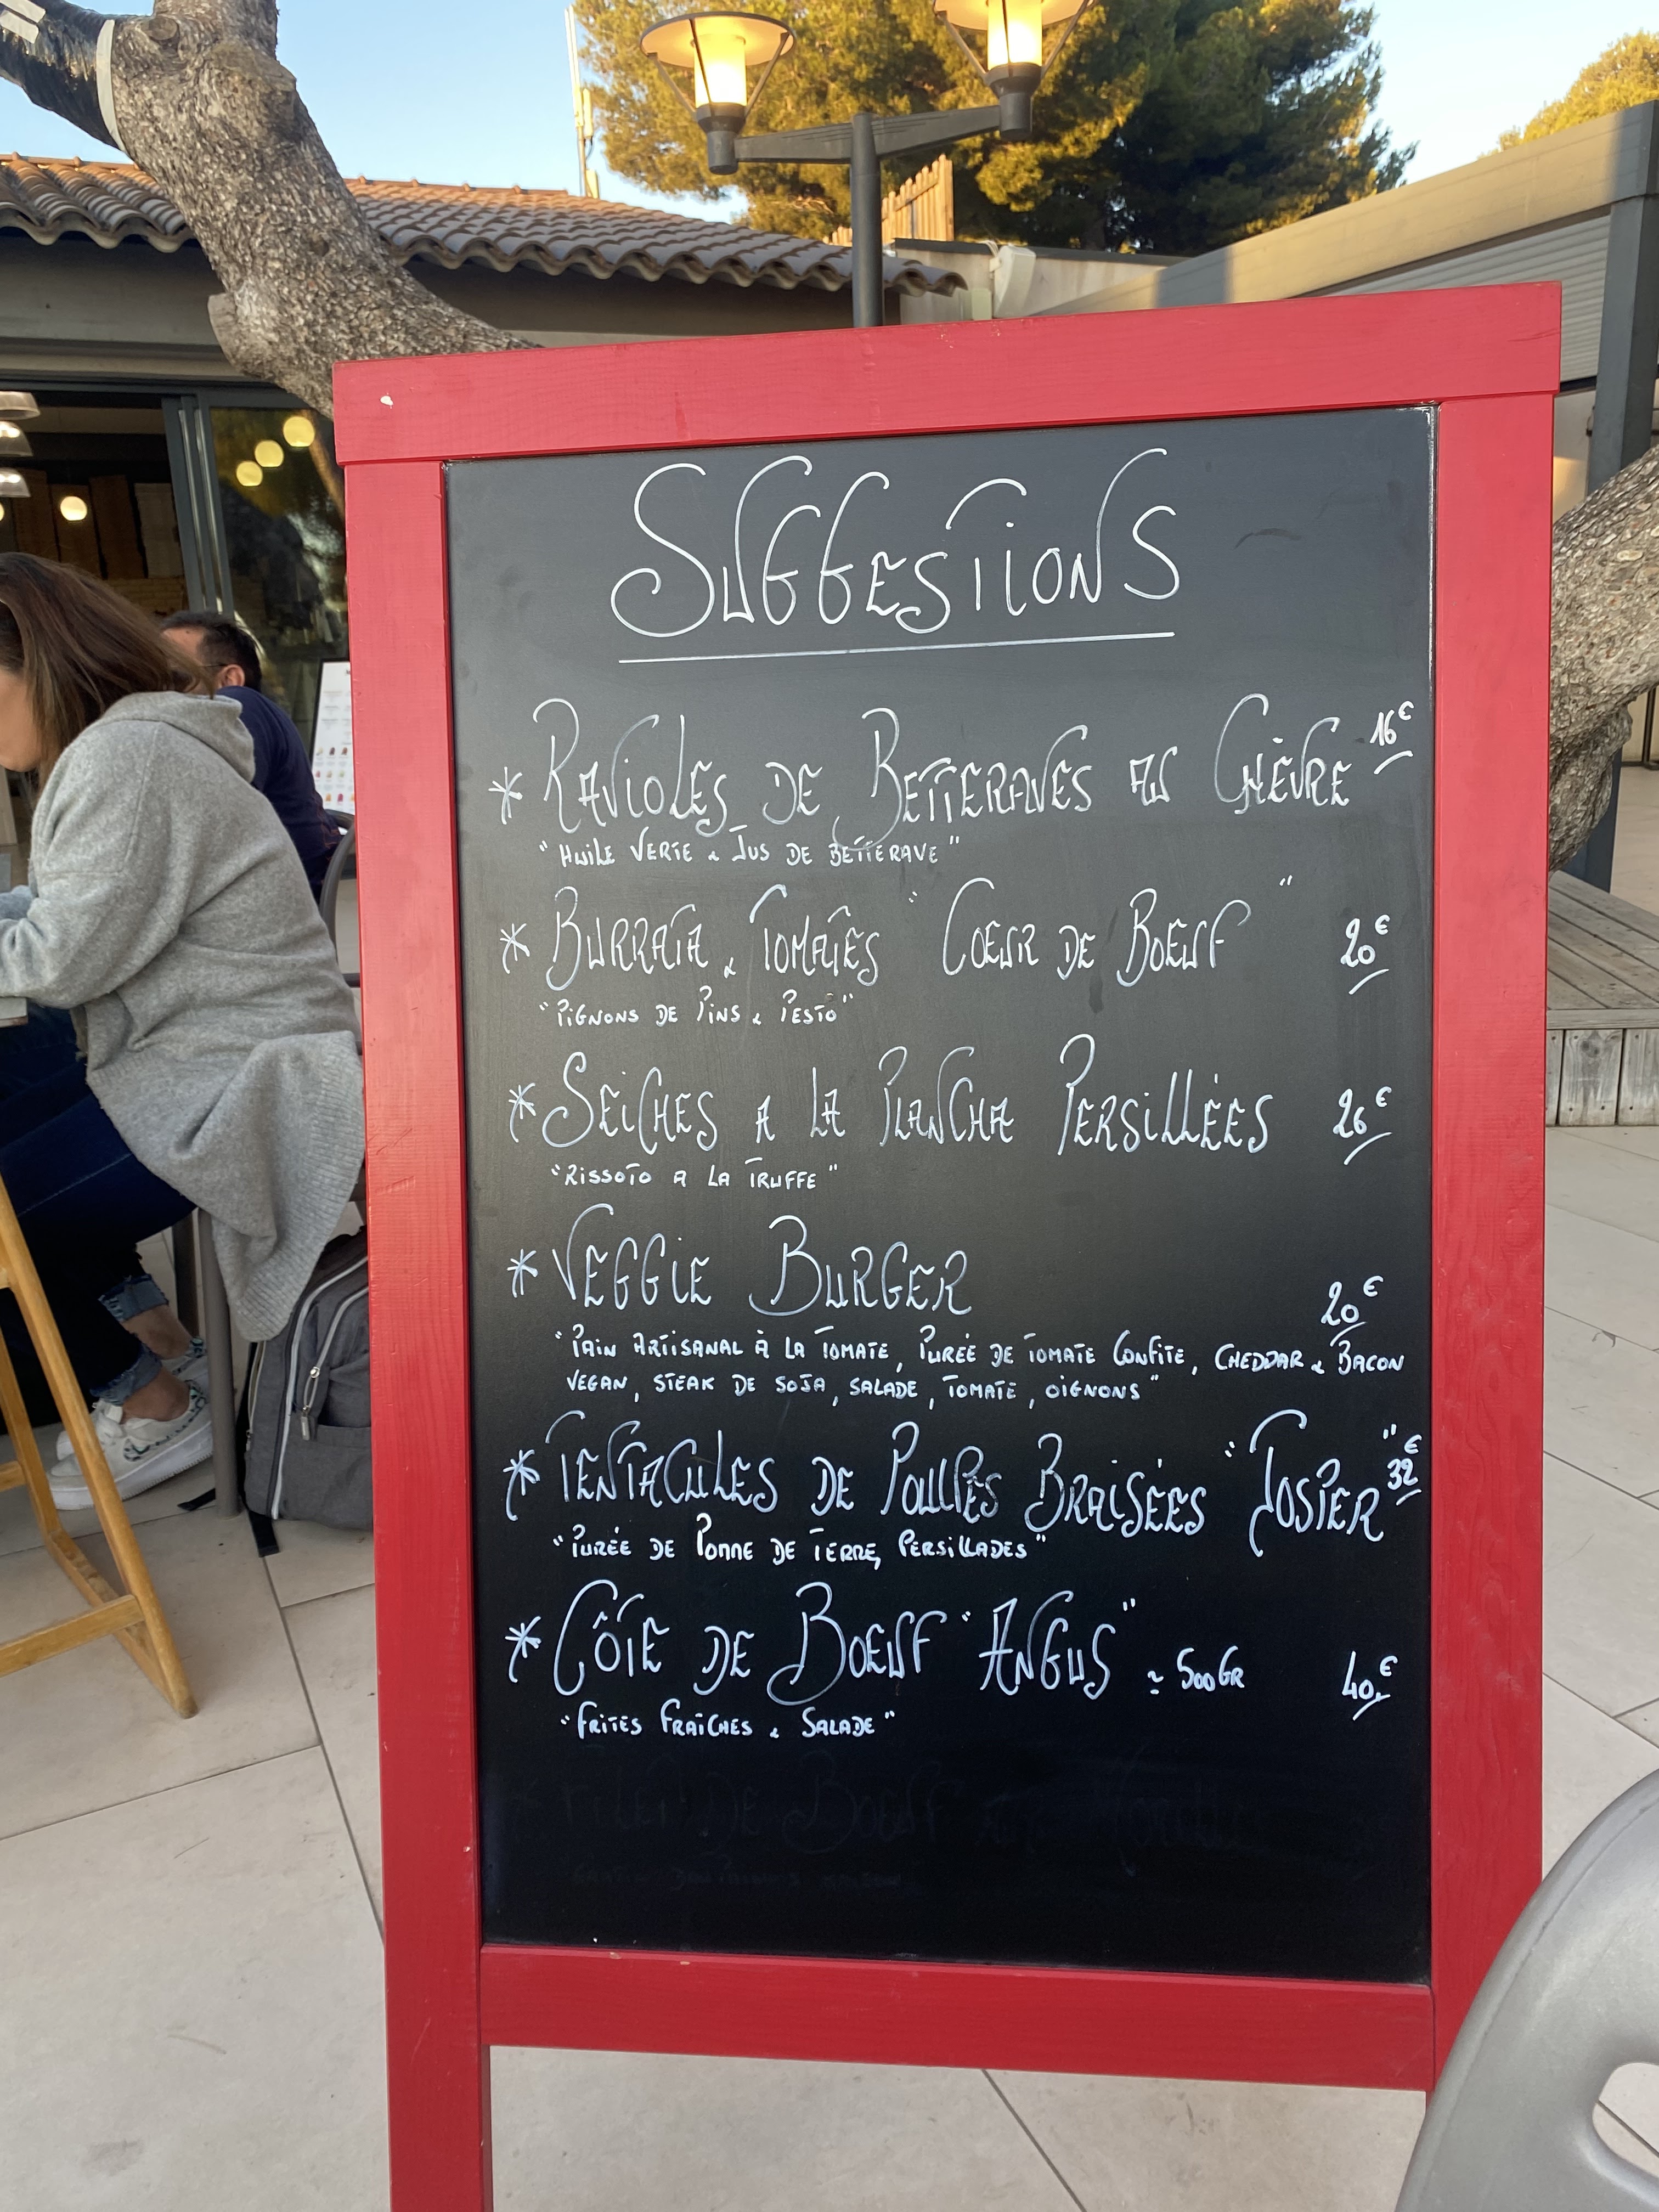 SUGGESTIONS
* RAVIOLES DE BETTERAVES AU CHÈVRE 16€
"HUILE VERTE & JUS DE BETTERAVE"
* BURRATA & TOMATES "COEUR DE BOEUF" 20€
"PIGNONS DE PINS & PESTO"
* SEICHES A LA PLANCHA PERSILLÉES 26€
"RISSOTO A LA TRUFFE"
* VEGGIE BURGER 20€
"PAIN ARTISANAL À LA TOMATE, PURÉE DE TOMATE CONFITE, CHEDDAR & BACON
VEGAN, STEAK DE SOJA, SALADE, TOMATE, OIGNONS"
* TENTACULES DE POULPES BRAISÉES "JOSPER" 32€
"PURÉE DE POMME DE TERRE, PERSILLADES"
* CÔTE DE BOEUF "ANGUS" ≃ 500GR 40€
"FRITES FRAÎCHES & SALADE"
DE BOEUF